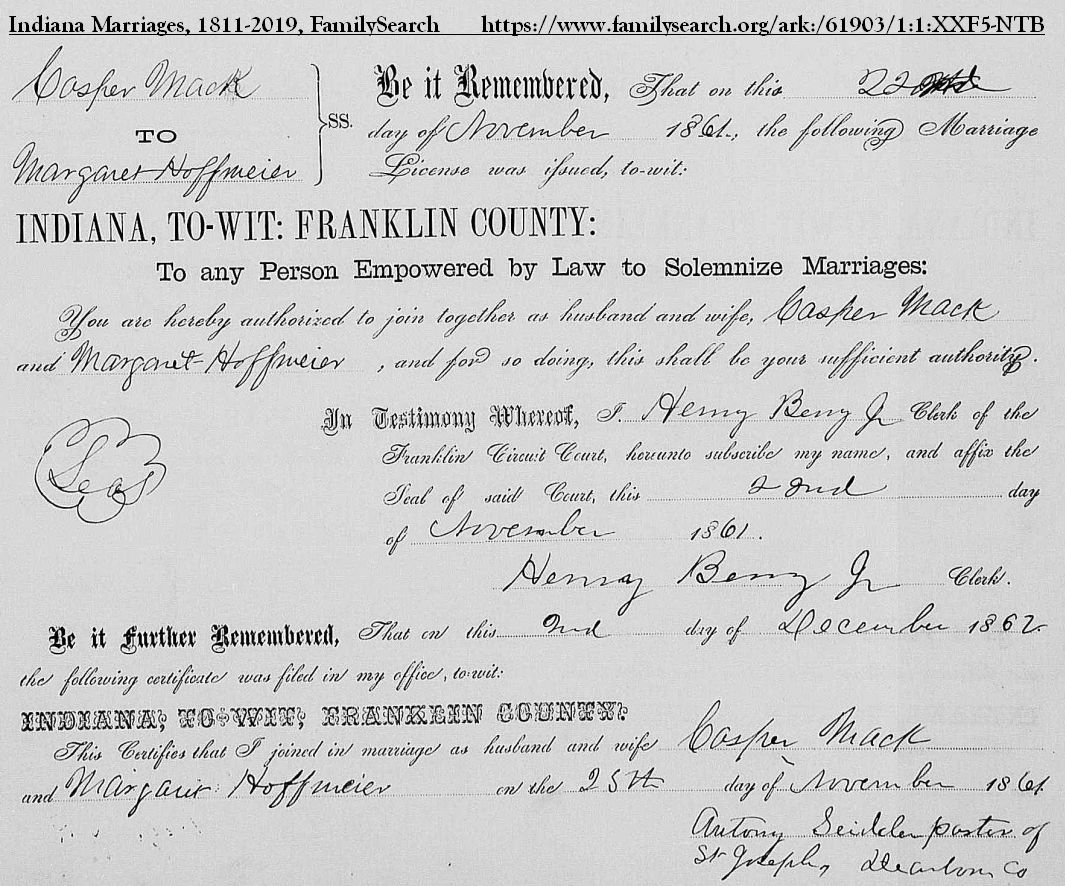 Indiana Marriages, 1811-2019, FamilySearch https://www.familysearch.org/ark:/61903/1:1:XXF5-NTB
Casper Mack
TO
Margaret Hoffmeier
SS.
Be it Remembered, That on this 22
day of November 1861, the following Marriage
License was issued, to-wit:
INDIANA, TO-WIT: FRANKLIN COUNTY:
To any Person Empowered by Law to Solemnize Marriages:
You are hereby authorized to join together as husband and wife, Casper Mack
and Margaret Hoffmeier, and for so doing, this shall be your sufficient authority.
In Testimony Whereof, I, Henry Berry Jr Clerk of the
Franklin Circuit Court, hereunto subscribe my name, and affix the
Seal
Seal of said Court, this 22nd day
of November 1861.
Henry Berry Jr Clerk.
Be it Further Remembered, That on this 2nd day of December 1862.
the following certificate was filed in my office, to-wit:
INDIANA, TO-WIT, FRANKLIN COUNTY:
This Certifies that I joined in marriage as husband and wife Casper Mack
and Margaret Hoffmeier on the 25th day of November 1861
Antony Seidden pastor of
St Joseph, Dearborn Co